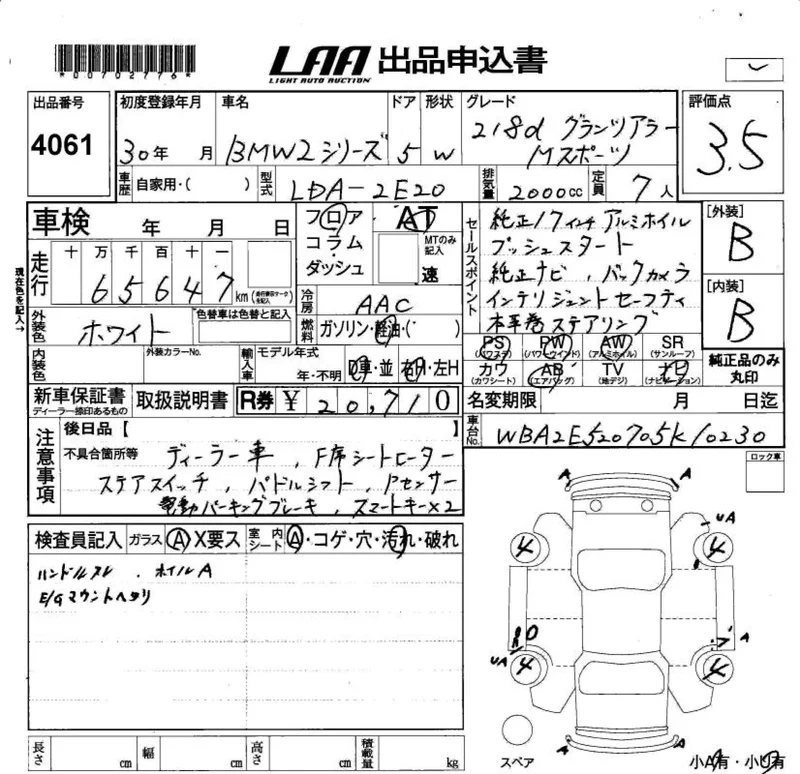 LAA 出品申込書
LIGHT AUTO AUCTION
*00702776*
出品番号
4061
初度登録年月
30年 月
車名
BMW2シリーズ
ドア
5
形状
W
グレード
218d グランツアラー
Mスポーツ
評価点
3.5
車歴 自家用・( )
型式 LDA-2E20
排気量 2000cc
定員 7人
車検 年 月 日
フロア
コラム・
ダッシュ
AT
MTのみ記入
速
セールスポイント
純正17インチアルミホイル
プッシュスタート
純正ナビ、バックカメラ
インテリジェントセーフティ
本革巻ステアリング
[外装]
B
[内装]
B
現在色を記入→
走行
十 万 千 百 十 一
6 5 6 4 7 km
(走行要マークを記入)
冷房 AAC
燃料 ガソリン・軽油・( )
外装色 ホワイト
色替車は色替と記入
内装色
外装カラーNo.
輸入車
モデル年式
年・不明
D車・並
右H・左H
PS
(パワステ)
PW
(パワーウインド)
AW
(アルミホイル)
SR
(サンルーフ)
カワ
(カワシート)
AB
(エアバッグ)
TV
(地デジ)
ナビ
(ナビゲーション)
純正品のみ
丸印
新車保証書
ディーラー捺印あるもの
取扱説明書
R券 ¥ 20,710
名変期限 月 日迄
車台No. WBA2E520705K10230
注意事項
後日品【 】
不具合箇所等
ディーラー車、F席シートヒーター
ステアスイッチ、パドルシフト、Pセンサー
電動パーキングブレーキ、スマートキー×2
ロック車
検査員記入
ガラス A X要ス
室内シート A・コゲ・穴・汚れ・破れ
ハンドルスレ、ホイルA
E/Gマウントヘタリ
A A
UA
4 4
A
UA
4 4
A A
スペア
小A有・小U有
長さ cm
幅 cm
高さ cm
積載量 kg